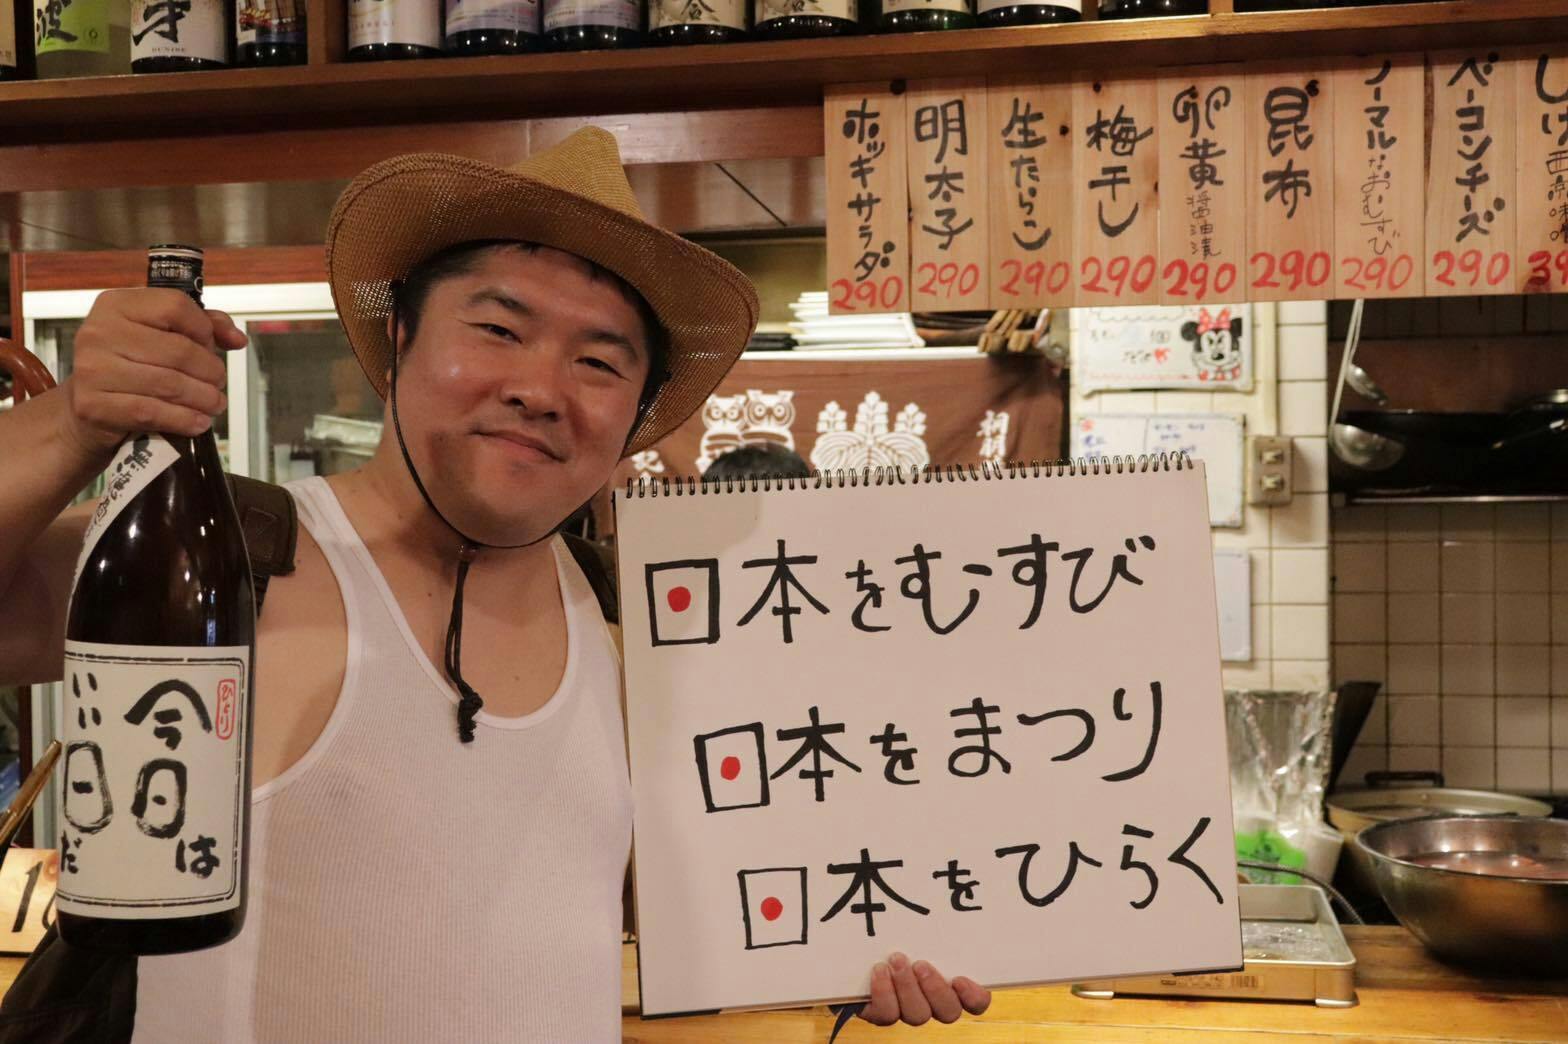 ホッキサラダ 290
明太子 290
生たらこ 290
梅干し 290
卵黄醤油漬 290
昆布 290
ノーマルなおむすび 290
ベーコンチーズ 290
日本をむすび
日本をまつり
日本をひらく
今日は
いい日だ